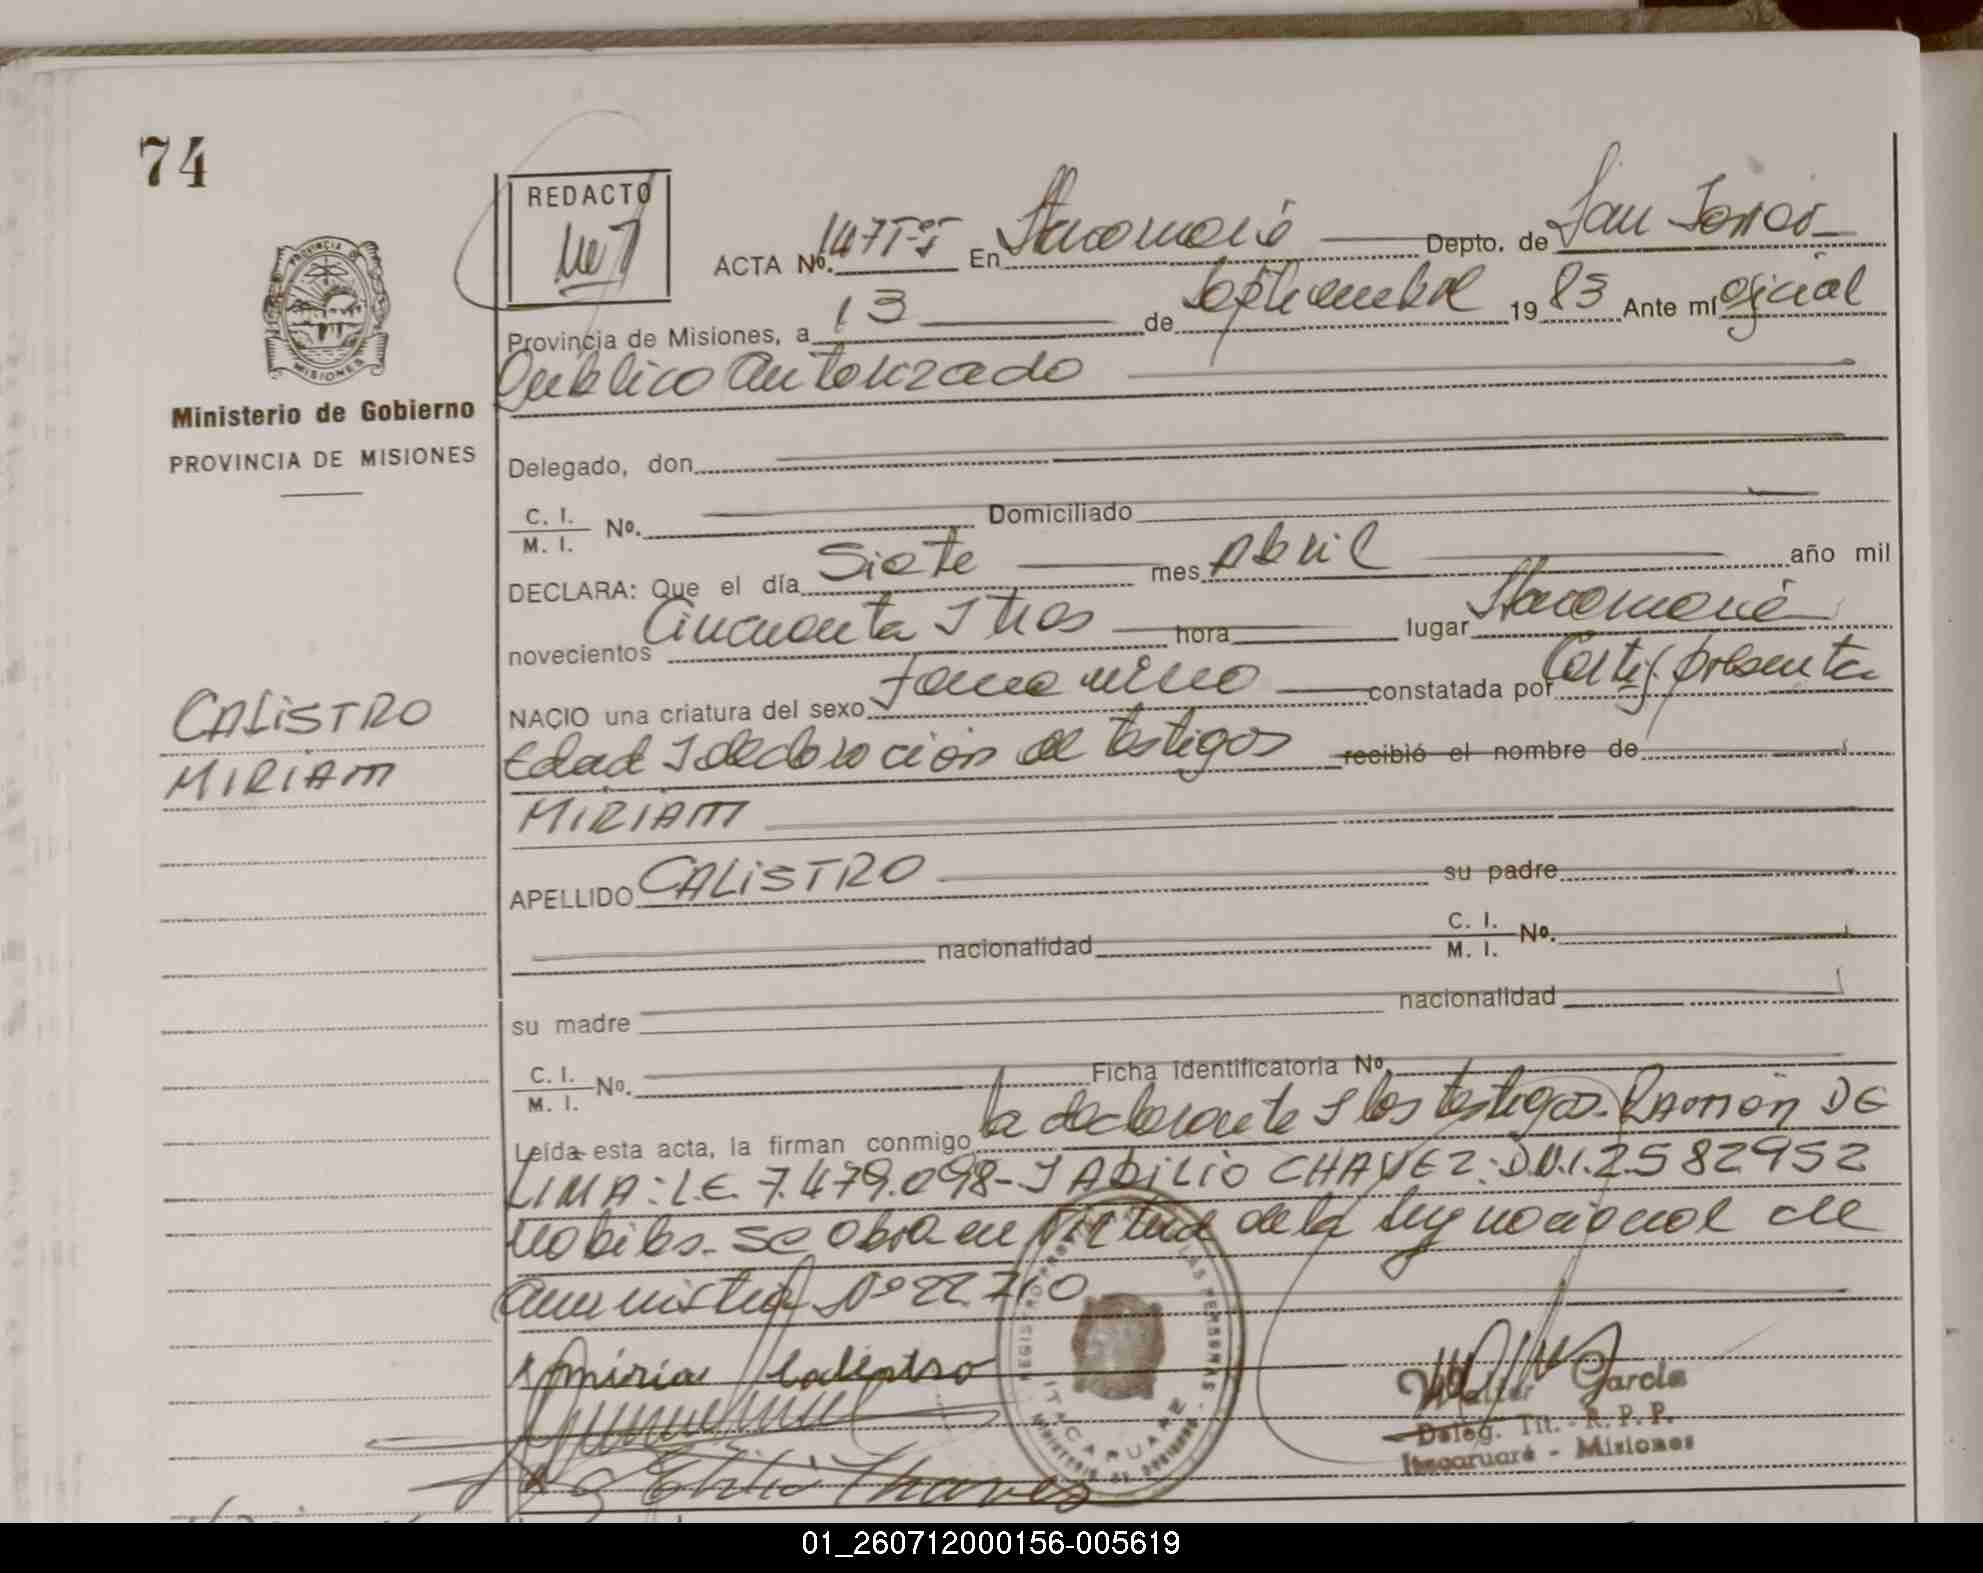 74
REDACTO
ACTA Nº. 147 En Itacaruaré Depto. de San Javier
Provincia de Misiones, a 13 de Septiembre 1983 Ante mí oficial
Público autorizado
PROVINCIA
MISIONES
Ministerio de Gobierno
PROVINCIA DE MISIONES
Delegado, don
C. I. Nº. Domiciliado
M. I.
DECLARA: Que el día Siete mes Abril año mil
novecientos Cincuenta y tres hora lugar Itacaruaré
NACIO una criatura del sexo femenino constatada por Certif. presenta
Edad y declaración de testigos recibió el nombre de
MIRIAM
CALISTRO
MIRIAM
APELLIDO CALISTRO su padre
nacionalidad C. I. Nº.
M. I.
su madre nacionalidad
C. I. Nº. Ficha identificatoria Nº
M. I.
Leída esta acta, la firman conmigo la declarante y los testigos. RAMÓN DE
LIMA: L.E. 7.479.098- y ABILIO CHAVEZ: D.N.I. 2582952
habiles. se obra en virtud de la ley nacional de
amnistia Nº 22.710
Miria Calistro
Walter García
Deleg. Tit. - R. P. P.
Itacaruaré - Misiones
REGISTRO LAS PERSONAS
ITACARUARE
Abilio Chavez
01_260712000156-005619